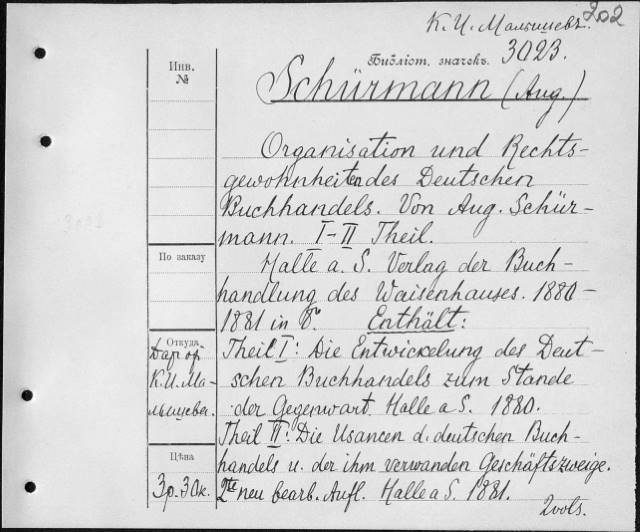 К. И. Малышевъ.
202
Инв.
№
Библіот. значекъ. 3023.
Schürmann (Aug.)
Organisation und Rechts-
gewohnheiten des Deutschen
Buchhandels. Von Aug. Schür-
mann. I-II Theil.
По заказу
Halle a. S. Verlag der Buch-
handlung des Waisenhauses. 1880-
1881 in 8°. Enthält:
Откуда
Даръ отъ
К. И. Ма-
лышева.
Theil I: Die Entwickelung des Deut-
schen Buchhandels zum Stande
der Gegenwart. Halle a S. 1880.
Theil II: Die Usancen d. deutschen Buch-
handels u. der ihm verwanden Geschäftszweige.
2te neu bearb. Aufl. Halle a S. 1881.
Цѣна
3 р. 30 к.
2 vols.